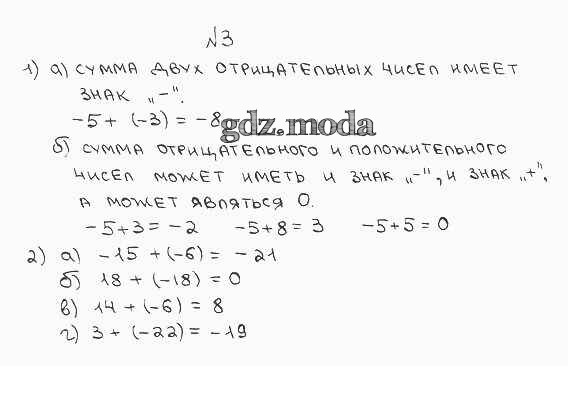 №3
1) а) сумма двух отрицательных чисел имеет
знак „-".
-5 + (-3) = -8
gdz.moda
б) сумма отрицательного и положительного
чисел может иметь и знак „-", и знак „+",
а может являться 0.
-5+3 = -2 -5+8 = 3 -5+5 = 0
2) а) -15 + (-6) = -21
б) 18 + (-18) = 0
в) 14 + (-6) = 8
г) 3 + (-22) = -19